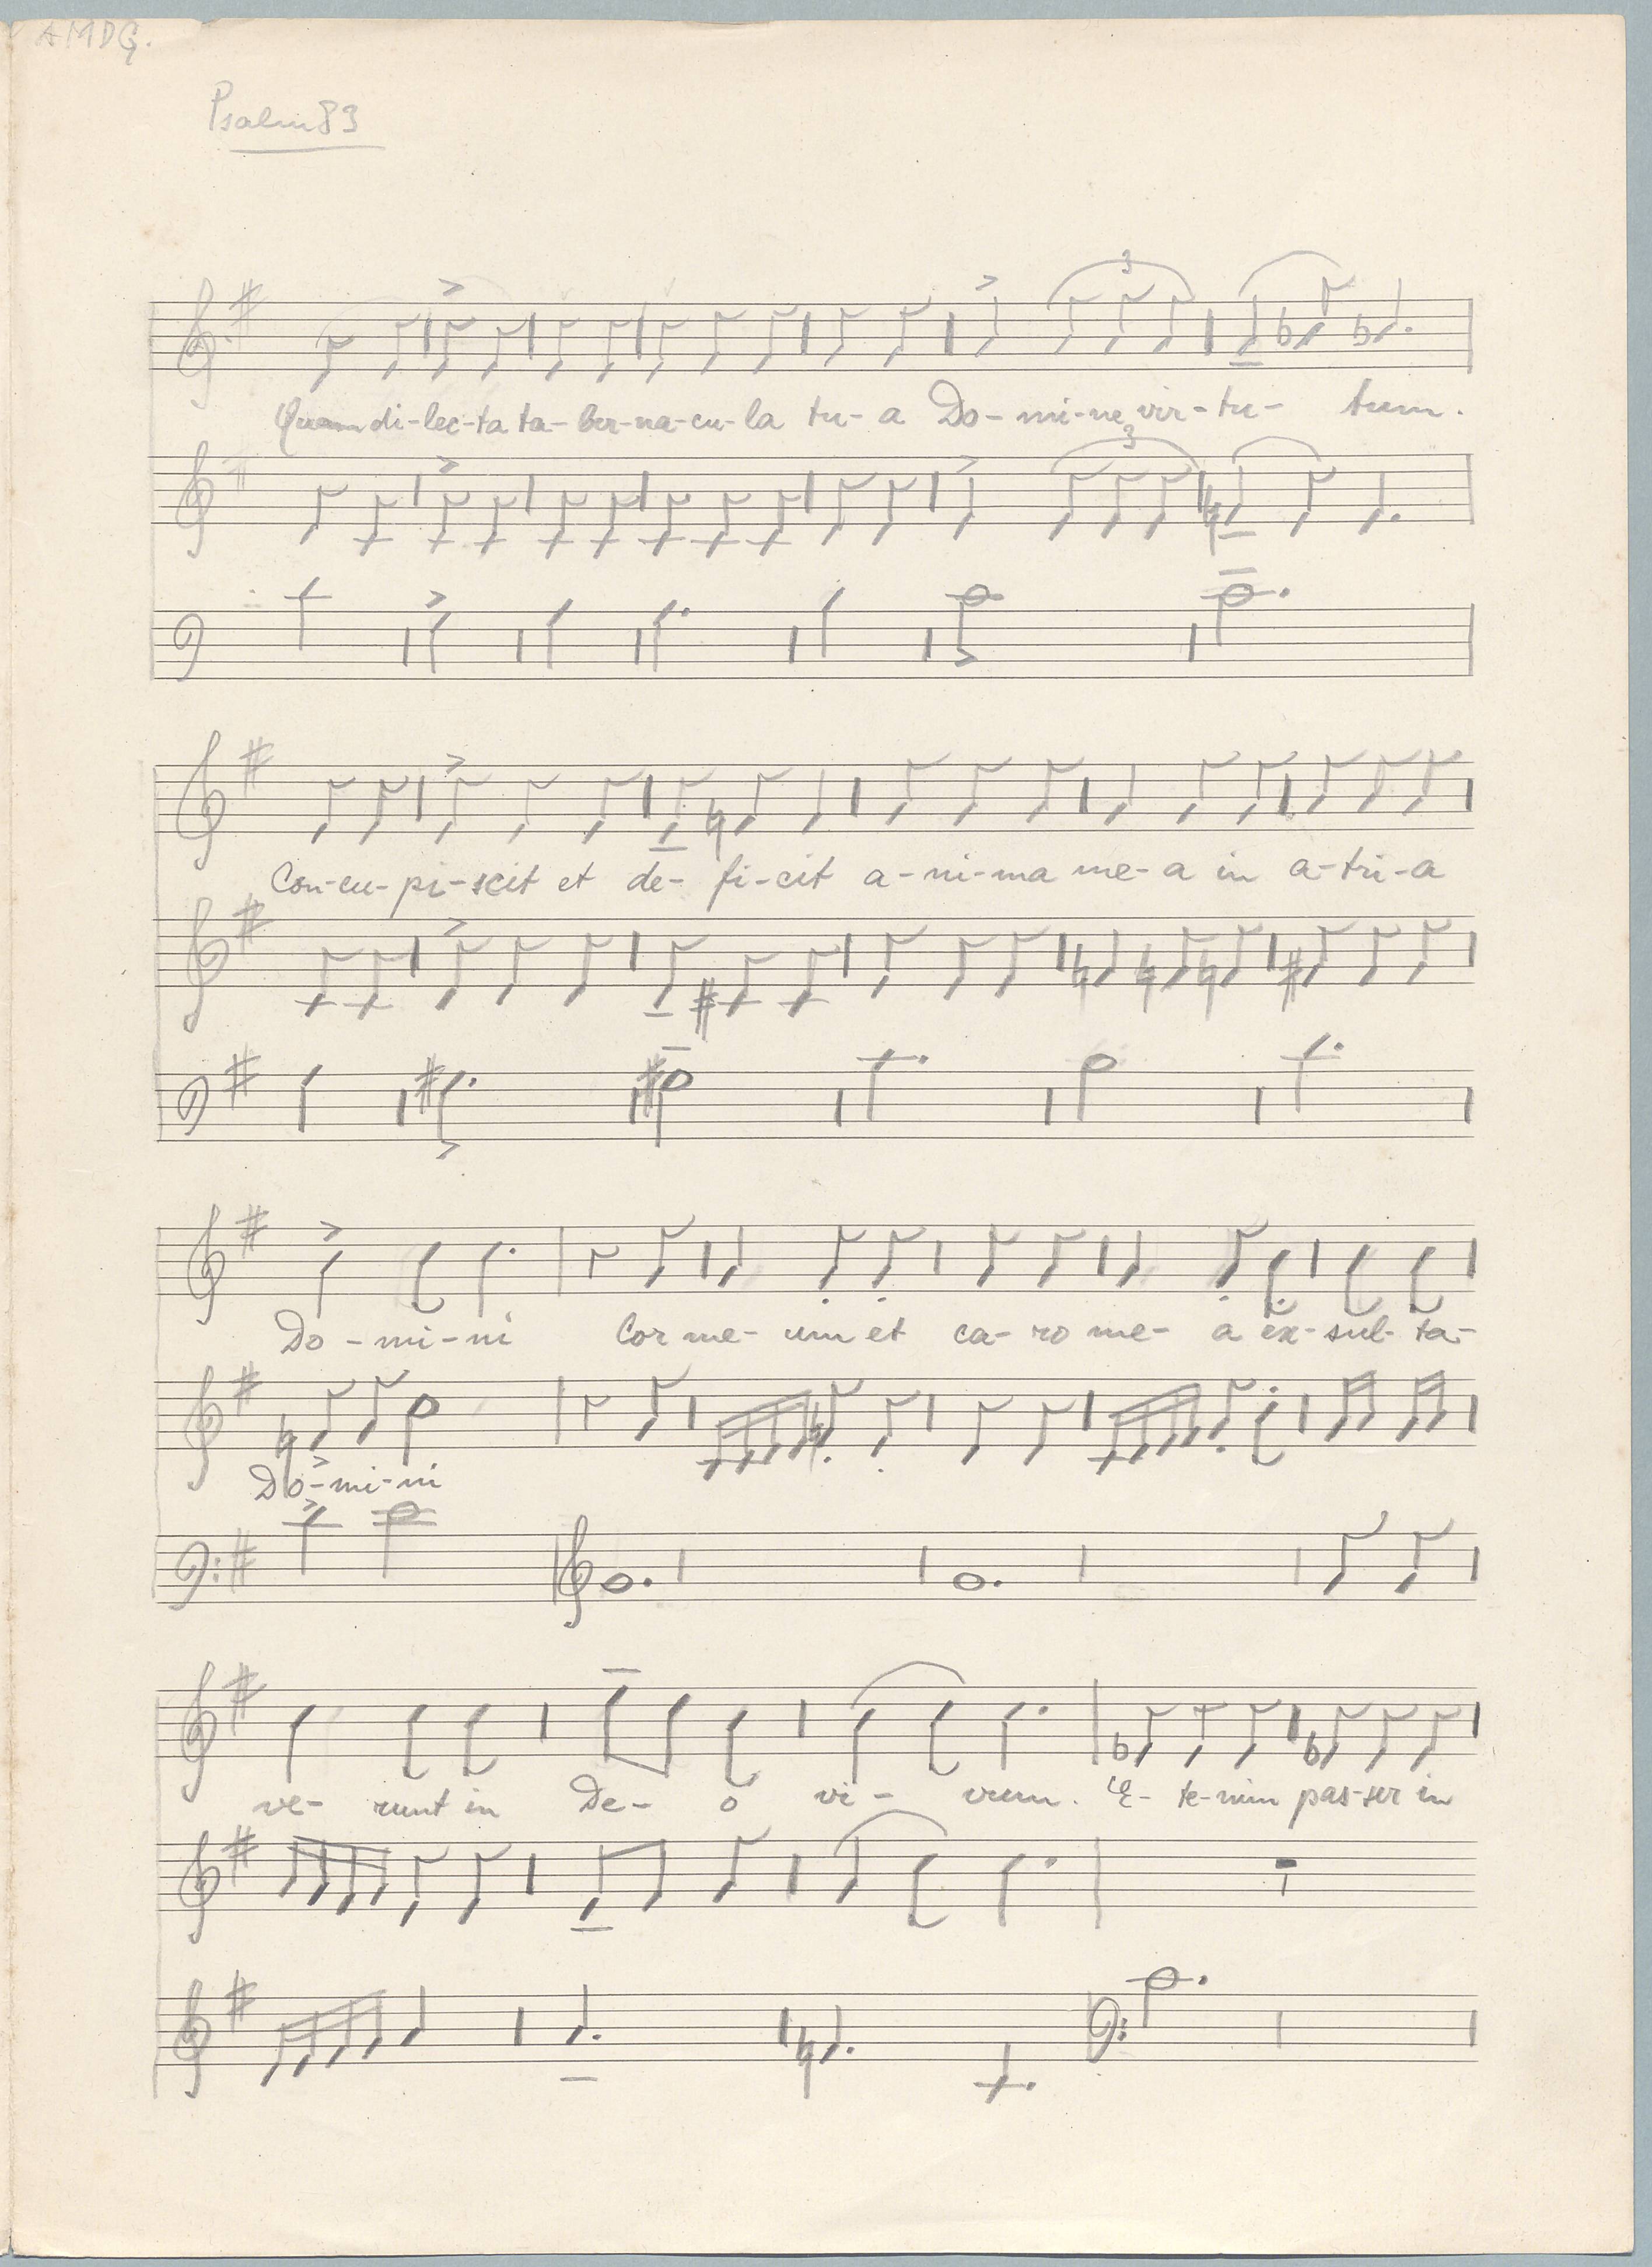 AMDG.
Psalm 83
3
Quam di-lec-ta ta-ber-na-cu-la tu-a Do-mi-ne vir-tu- tum.
3
Con-cu-pi-scit et de-fi-cit a-ni-ma me-a in a-tri-a
Do-mi-ni Cor me-um et ca-ro me-a ex-sul-ta-
Do-mi-ni
ve-runt in De-o vi-vum. E-te-nim pas-ser in